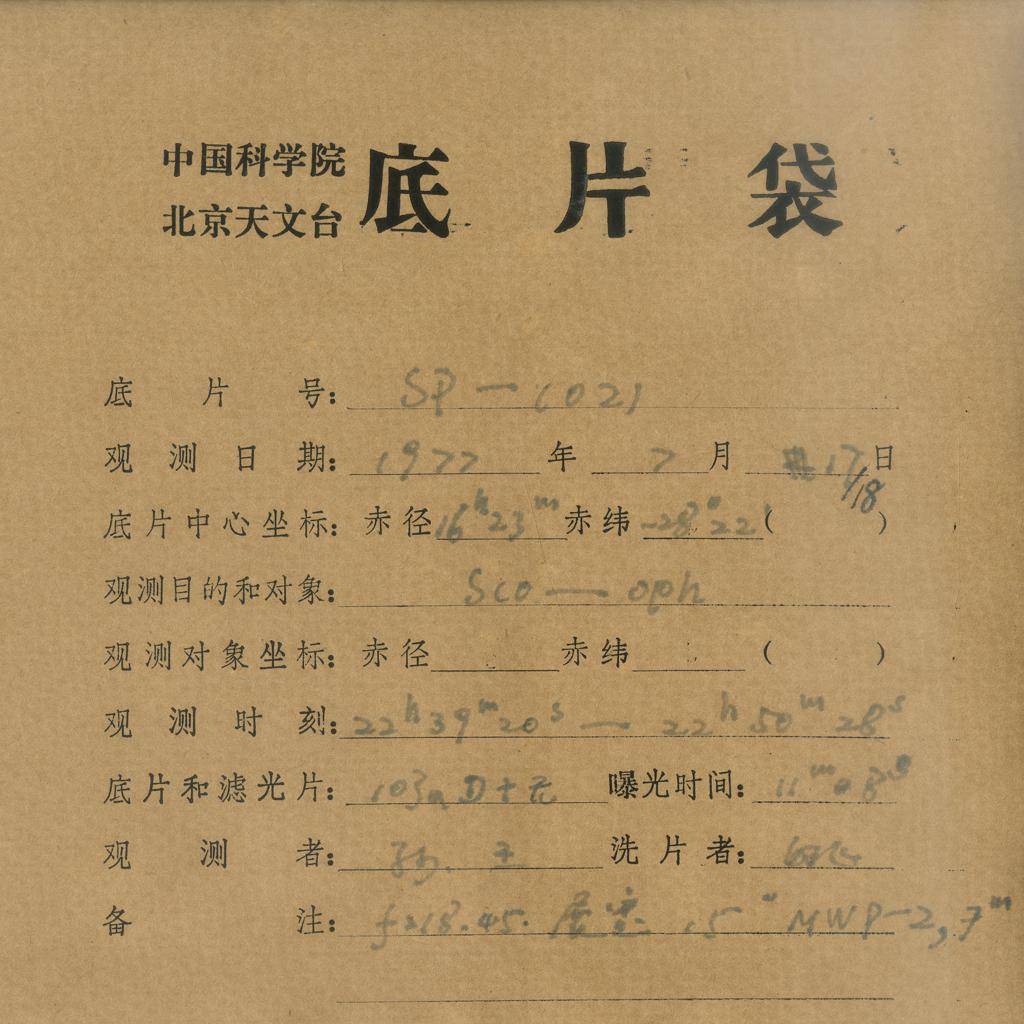 中国科学院
北京天文台
底片袋
底片号: SP—1021
观测日期: 1977 年 7 月 17/18 日
底片中心坐标: 赤径 16h23m 赤纬 -28°22' ( )
观测目的和对象: Sco — oph
观测对象坐标: 赤径 赤纬 ( )
观测时刻: 22h39m20s — 22h50m28s
底片和滤光片: 103aD+无 曝光时间: 11m08s
观测者: 孙. 王 洗片者:
备注: f218.45. 15" MWP-2, 7m